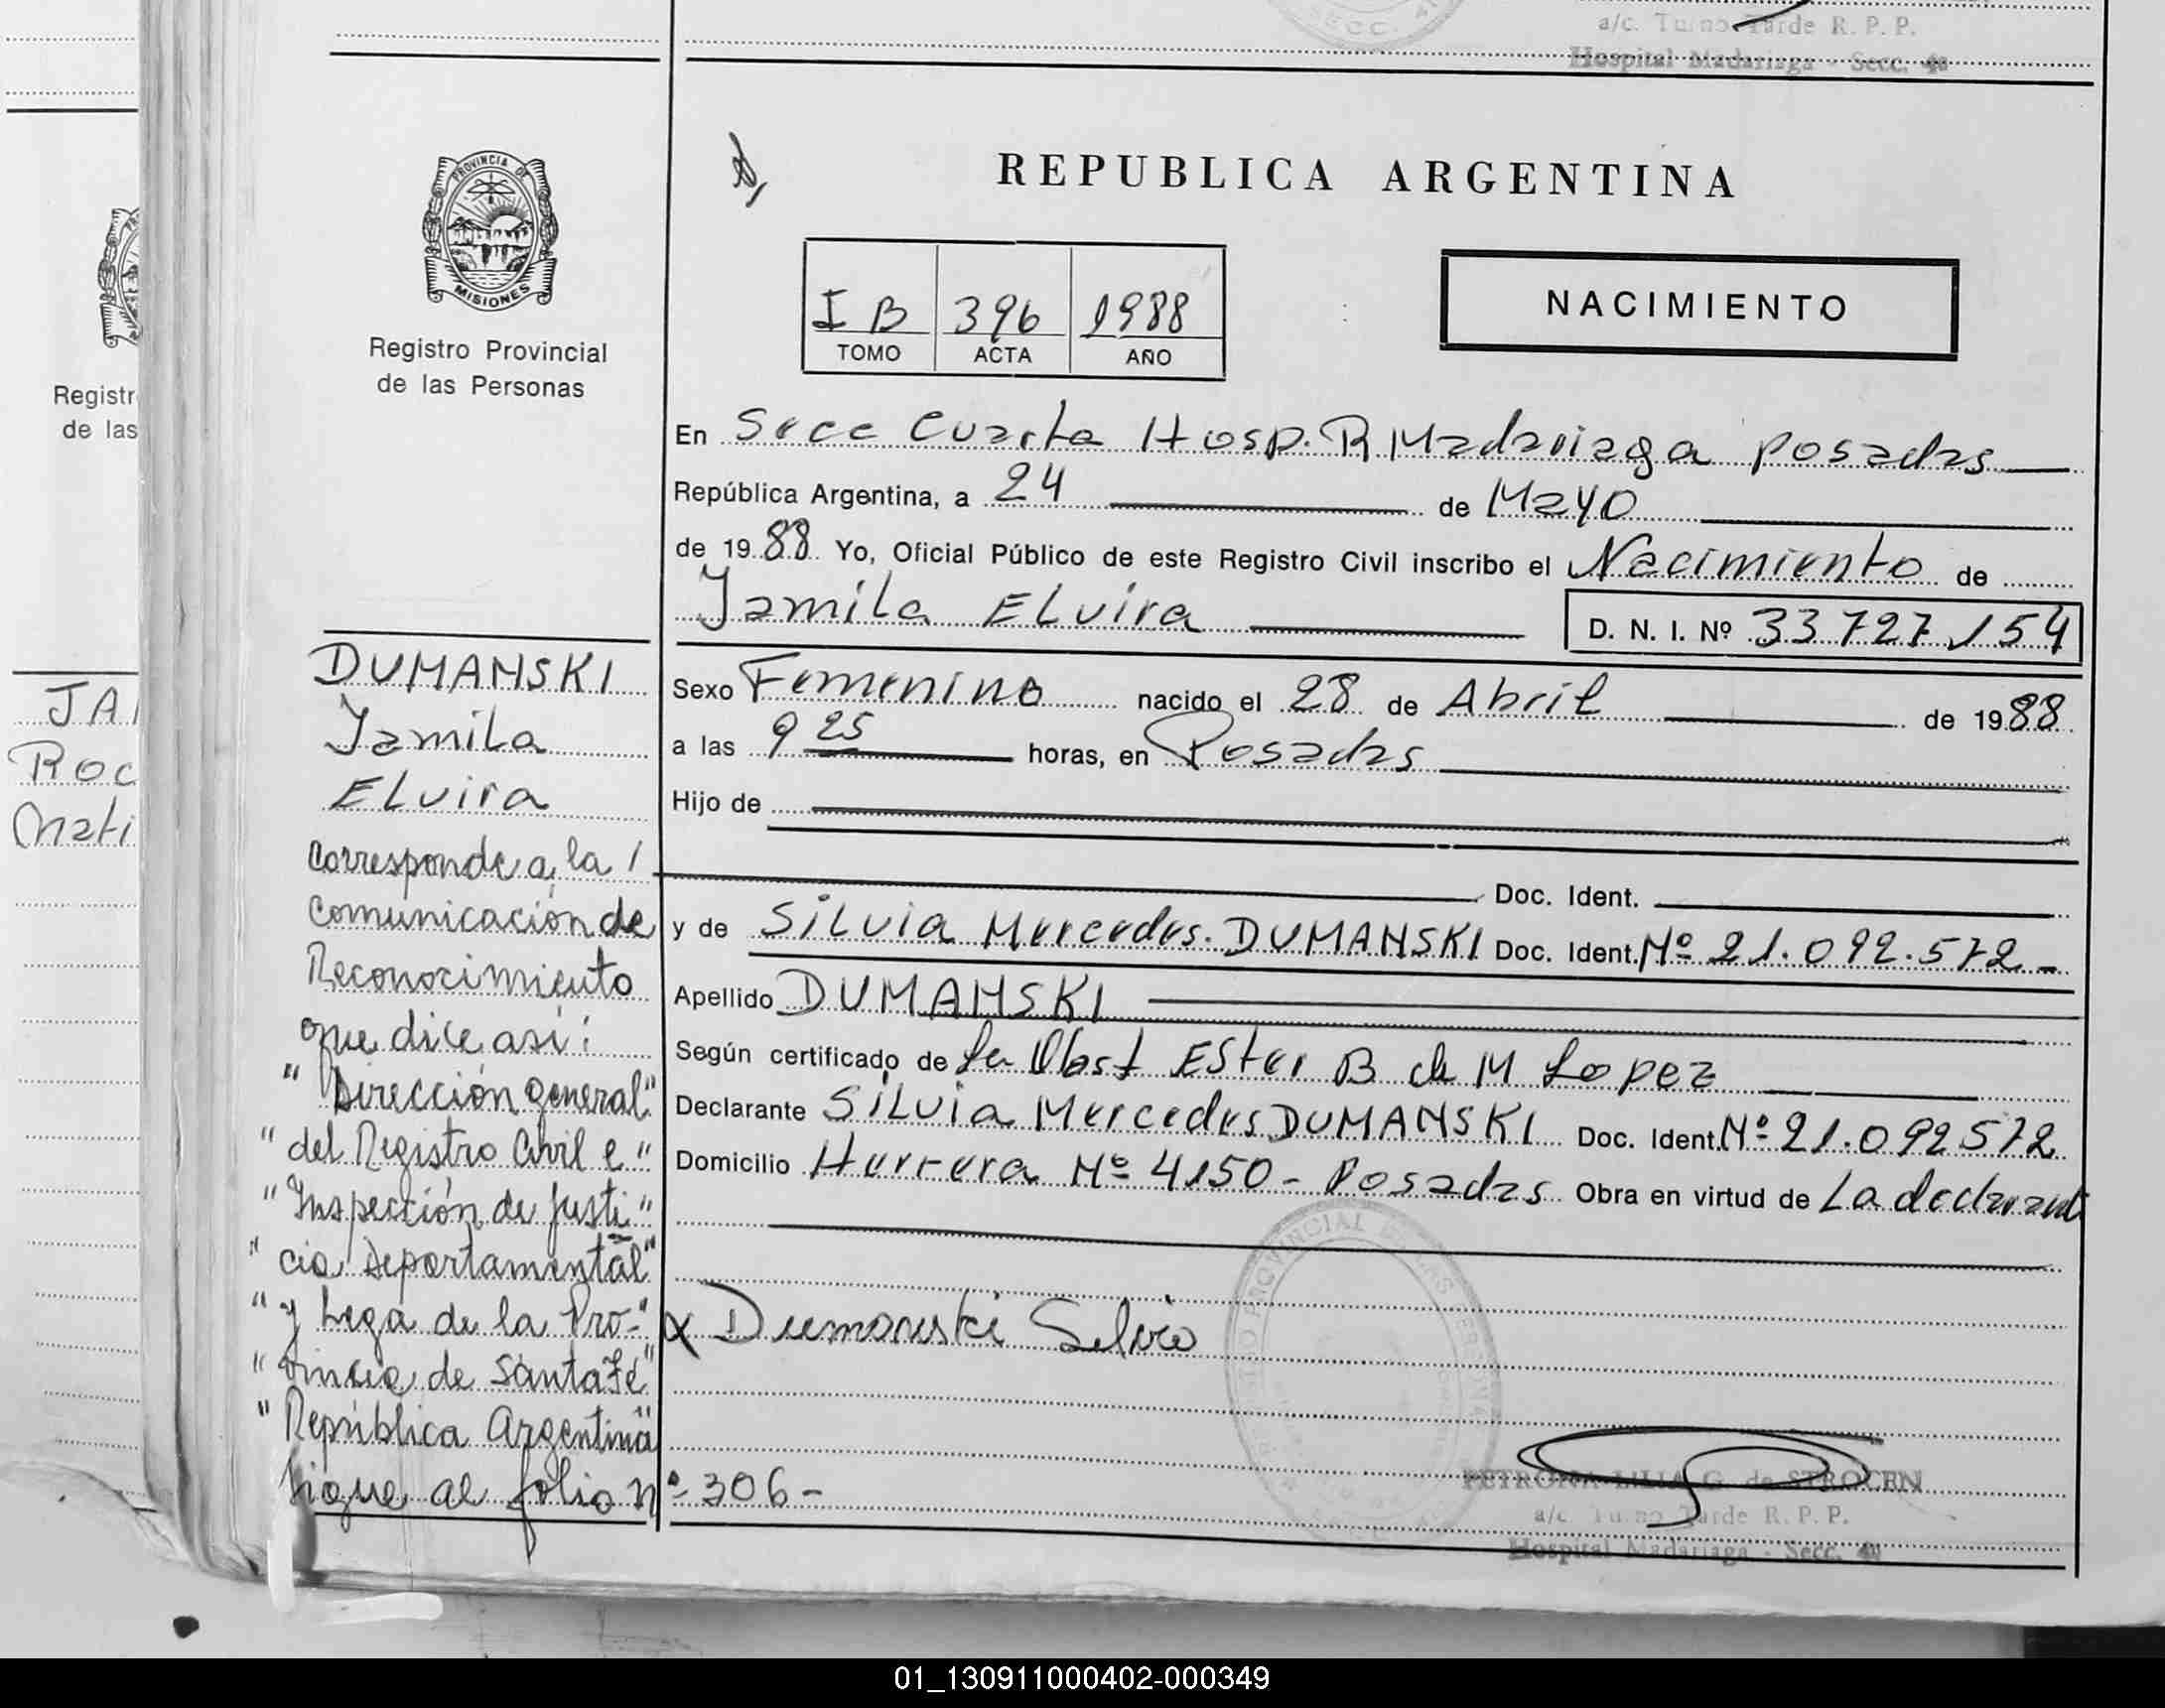 a/c. Turno Tarde R. P. P.
Hospital Madariaga - Secc. 4a
SECC. 4
PROVINCIA DE
MISIONES
Registro Provincial
de las Personas
Registr
de las
JA
Roc
Mati
REPUBLICA ARGENTINA
I B 396 1988
TOMO ACTA AÑO
NACIMIENTO
En Secc Cuarta Hosp. R Madariaga Posadas
República Argentina, a 24 de Mayo
de 1988 Yo, Oficial Público de este Registro Civil inscribo el Nacimiento de
Yamila ELvira
D. N. I. Nº 33727154
DUMANSKI
Yamila
ELvira
Sexo Femenino nacido el 28 de Abril de 1988
a las 9 25 horas, en Posadas
Hijo de
Doc. Ident.
y de SiLvia Mercedes DUMANSKI Doc. Ident. Nº 21.092.572-
Apellido DUMANSKI
Según certificado de La Obst Ester B de M Lopez
Declarante SiLvia Mercedes DUMANSKI Doc. Ident. Nº 21.092572
Domicilio Herrera Nº 4150 - Posadas Obra en virtud de La declarant
Corresponde a la /
Comunicación de
Reconocimiento
que dice así:
" Dirección general "
" del Registro Civil e "
" Inspección de Justi "
" cia Departamental "
" y Lega de la Pro- "
" vincia de Santa Fé "
" República Argentina "
Sigue al folio nº 306-
x Dumanski Silvia
PETRONA LILIA G. de STROCEN
a/c Turno Tarde R. P. P.
Hospital Madariaga - Secc. 4a
01_130911000402-000349